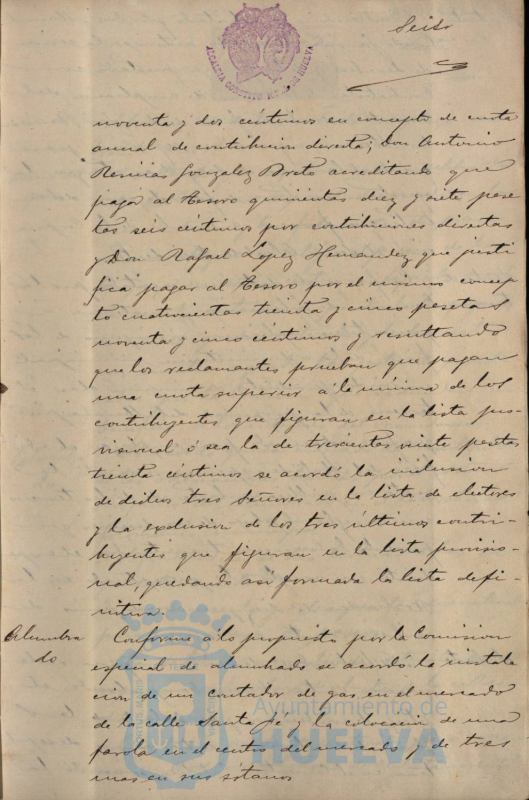 Seis
ALCALIA CONSTITUCIONAL DE HUELVA
noventa y dos céntimos en concepto de cuota
anual de contribucion directa; Don Antonio
Gonzalez Breto acreditando que
pagar al Tesoro quinientas diez y siete pese
tas seis céntimos por contribuciones directas
y Don Rafael Lopez Hernandez que justi
fica pagar al Tesoro por el mismo concep
to cuatrocientas treinta y cinco pesetas
noventa y cinco céntimos y resultando
que los reclamantes prueban que pagan
una cuota superior á la mínima de los
contribuyentes que figuran en la lista pro
visional ó sea la de trescientas veinte pesetas
treinta céntimos se acordó la inclusion
de dichos tres Señores en la lista de electores
y la exclusion de los tres últimos contri-
buyentes que figuran en la lista provisio-
nal, quedando así formada la lista defi-
nitiva.
Alumbra
do
Conforme á lo propuesto por la Comision
especial de alumbrado se acordó la instala
cion de un contador de gas en el mercado
de la calle Santa Fe y la colocacion de una
farola en el centro del mercado y de tres
mas en sus sótanos
Ayuntamiento de
HUELVA